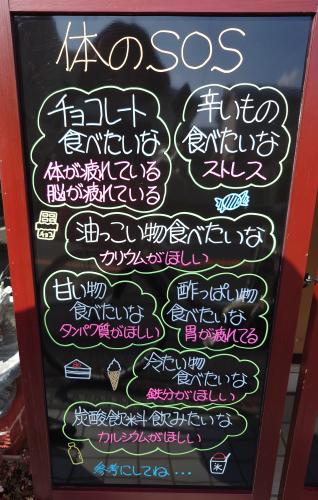 体のSOS
チョコレート
食べたいな
体が疲れている
脳が疲れている
辛いもの
食べたいな
ストレス
チョコ
油っこい物食べたいな
カリウムがほしい
甘い物
食べたいな
タンパク質がほしい
酢っぱい物
食べたいな
胃が疲れてる
冷たい物
食べたいな
鉄分がほしい
炭酸飲料飲みたいな
カルシウムがほしい
参考にしてね...
氷